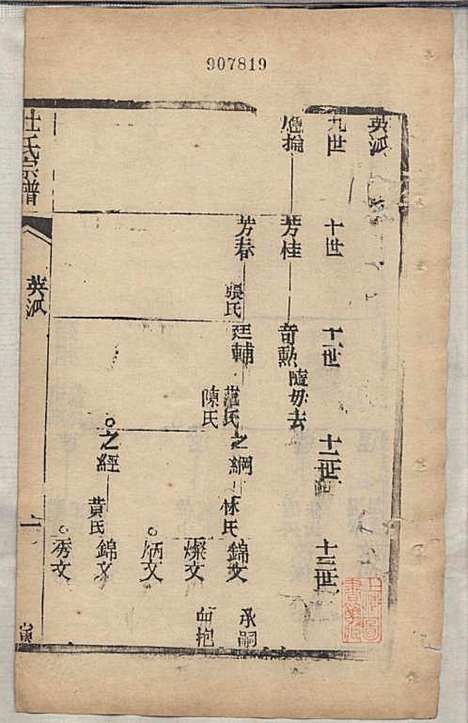 907819
英派
九世
十世
十一世
十二世
十三世
應掄
芳桂
奇勲
隨母去
芳春
張氏
廷輔
陳氏
之綱
林氏
錦文
承嗣
燦文
血抱
炳文
之經
黃氏
錦文
秀文
杜氏宗譜
英派